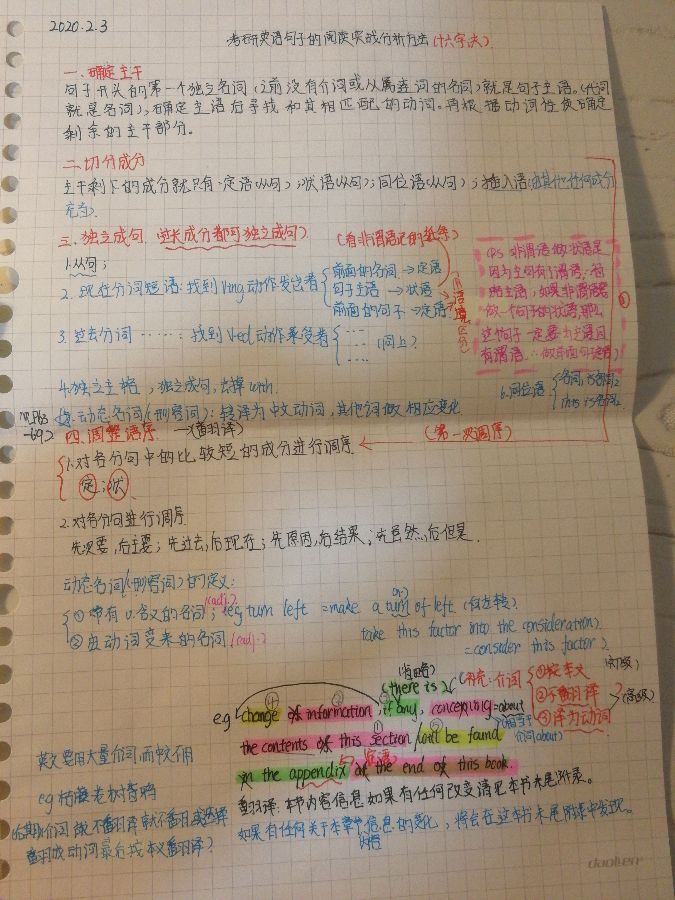 2020.2.3
考研英语句子的阅读实战分析方法(十六字决)
一.确定主干
句子开头的第一个独立名词(之前没有介词或从属连词的名词)就是句子主语。(代词
就是名词),确定主语后寻找和其相匹配的动词。再根据动词性质确定
剩余的主干部分。
二.切分成分
主干剩下的成分就只有:定语(从句);状语(从句);同位语(从句);插入语(由其他任何成分
充当)
三.独立成句.(较长成分都可独立成句)
(有非谓语记的越紧)
1.从句;
2.现在分词短语:找到Ving动作发出者
前面的名词→定语
句子主语→状语
前面的句子→定语
(语境区分)
3.过去分词……:找到Ved动作承受者
(同上)
4.独立主格,独立成句,去掉with.
5.动态名词(刑警词):转译为中文动词,其他词做相应变化
6.同位语
名词1,名词2
This is 名词2
PS 非谓语做状语是
因为主句有了谓语,省
略主语;如果非谓语
做一个句子的状语,那么
这个句子一定要有主语且
有谓语.
四.调整语序
→(翻译)
(第一次调序)
1.对各分句中的比较短的成分进行调序
定;状
2.对各分句进行调序
先次要,后主要;先过去,后现在;先原因,后结果;先虽然,后但是.
动态名词(刑警词)的定义:
①带有v.含义的名词;eg turn left = make a turn of left (向左转)
②由动词变来的名词
take this factor into the consideration
= consider this factor
(省略)
(there is)
(补充:介词
①按本义
②不翻译
③译为动词
(初级)
(高级)
e.g change of information, if any, concerning=about
(相当于
介词about)
the contents of this section will be found
in the appendix at the end of this book.
翻译:本节内容信息如果有任何改变请见本书末尾附录。
如果有任何关于本章节信息的变化,将会在这本书末尾附录中发现。
内容
英文要用大量介词,而中文不用
eg 枯藤老树昏鸦
daolen